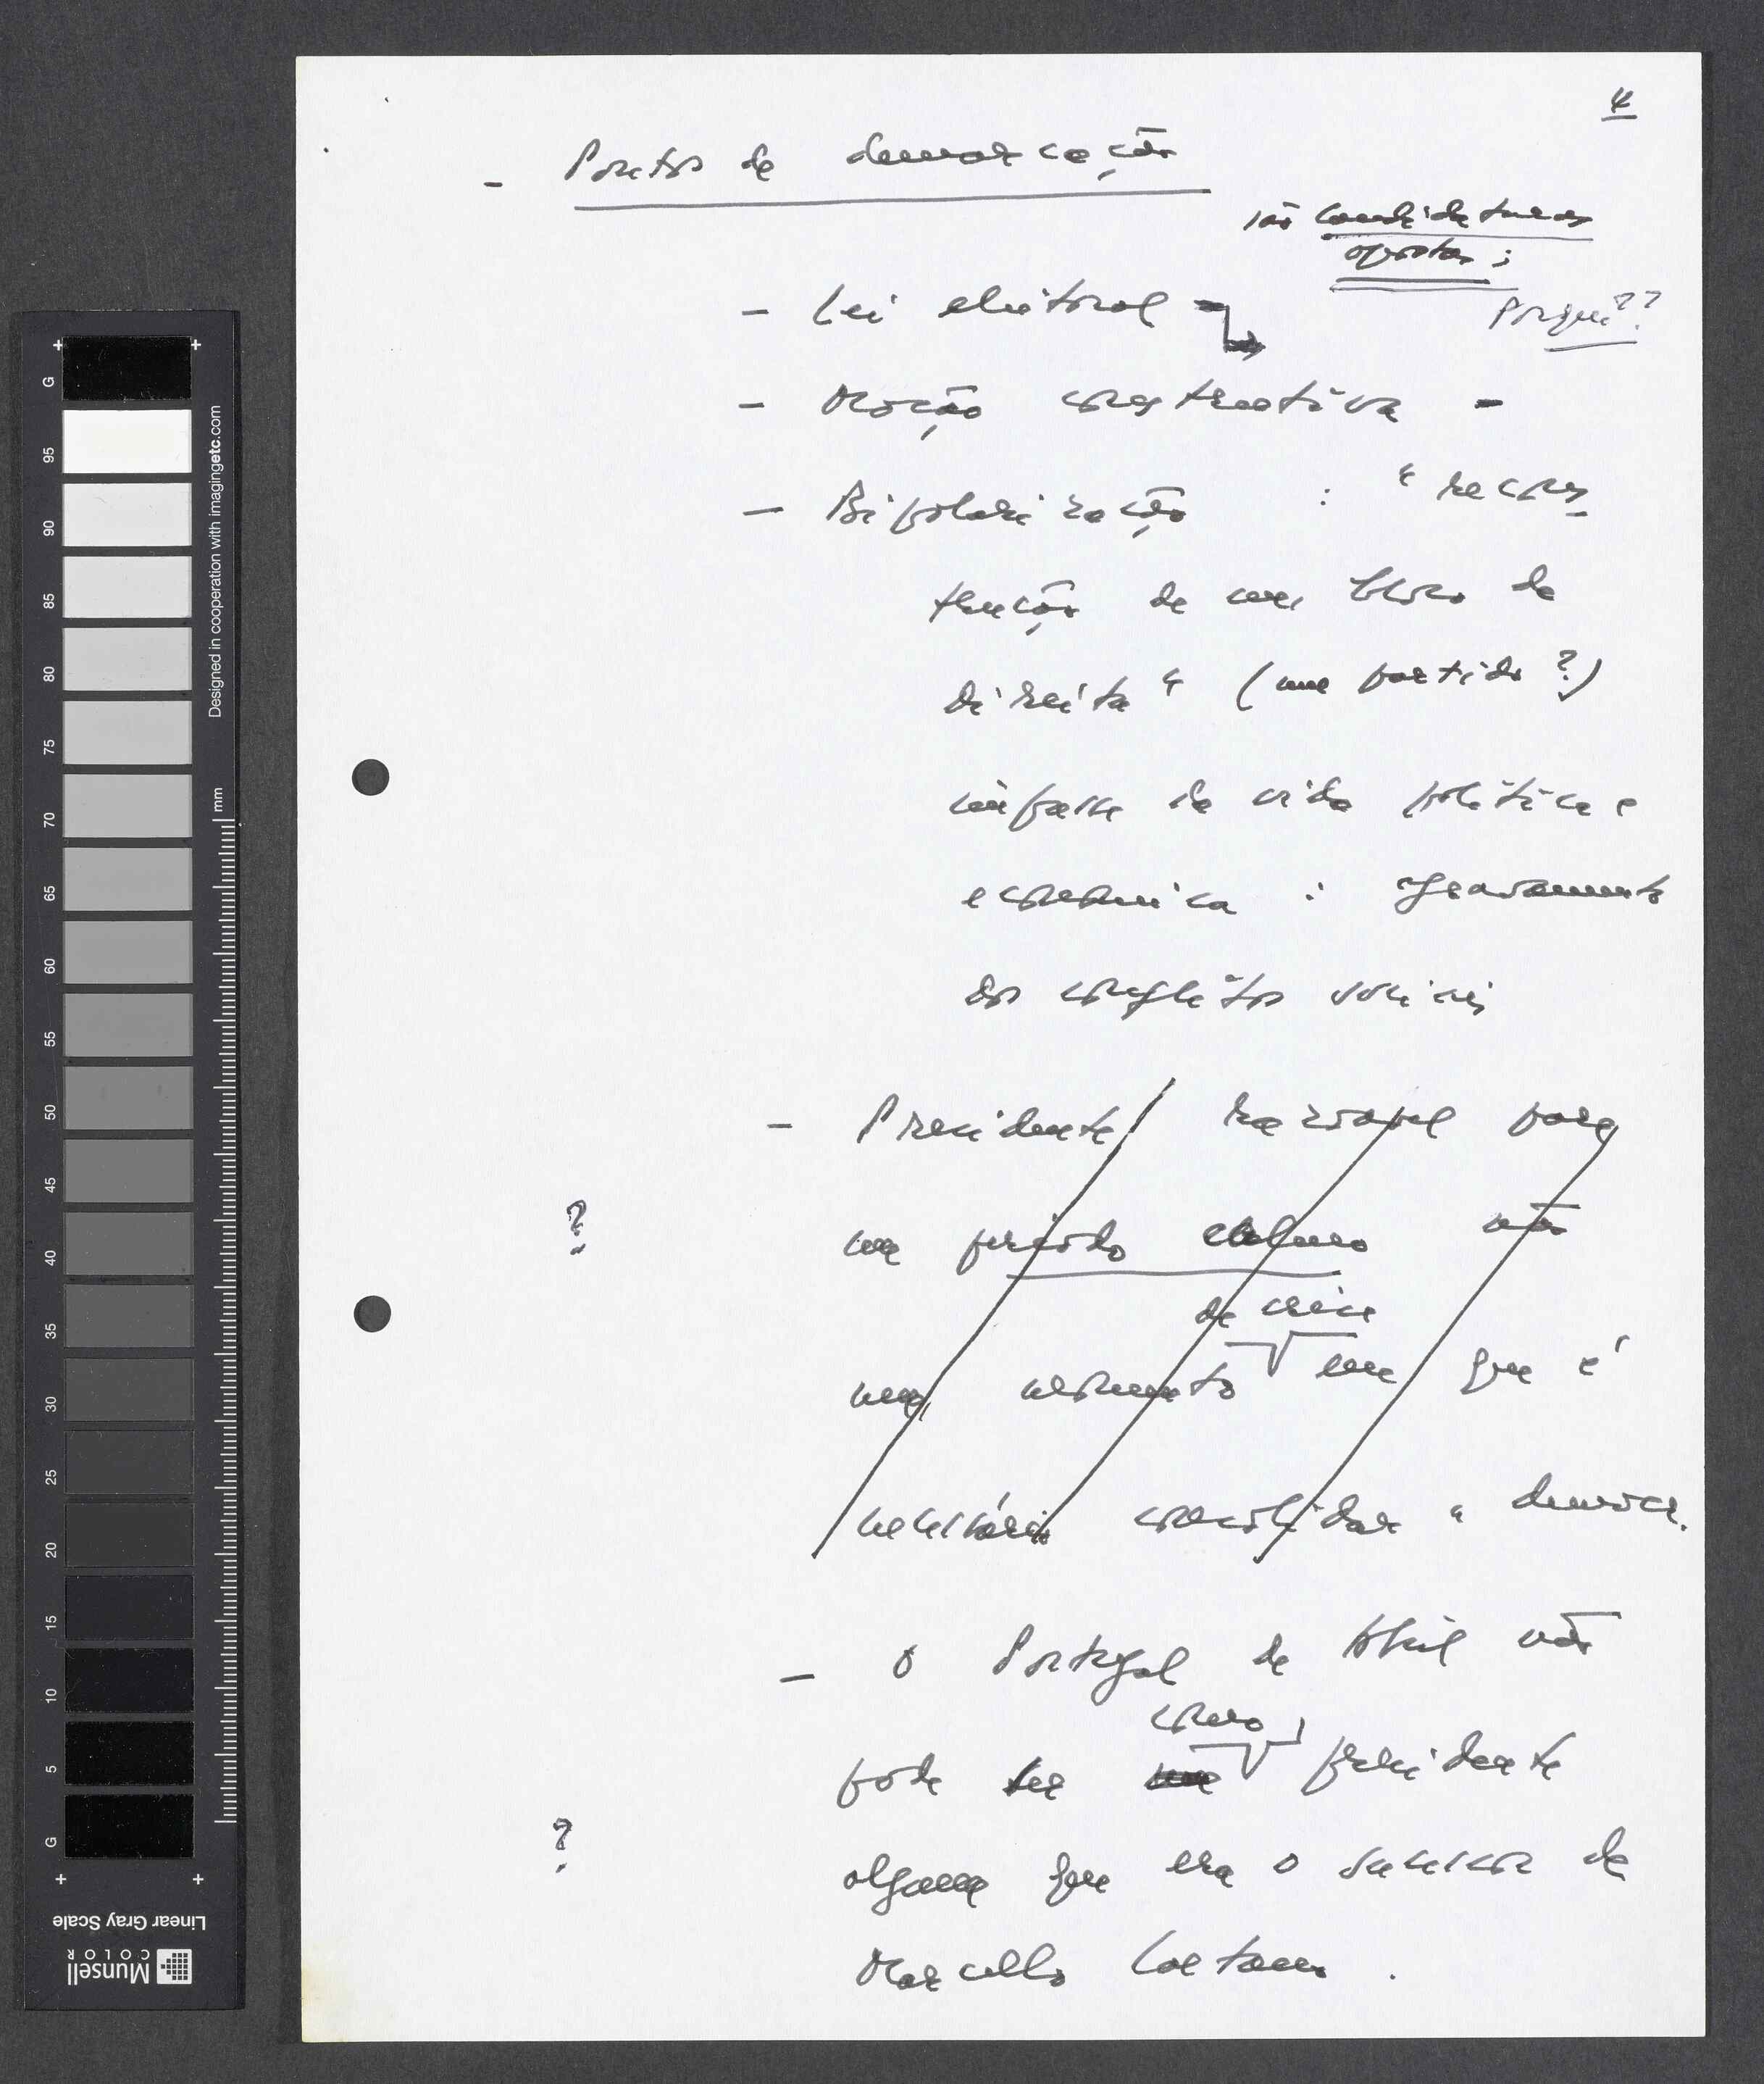 4
- Pontos de demarcação
são candidaturas
opostas;
Porquê??
- Lei eleitoral
- Moção construtiva -
- Bipolarização : "recons
trução de um bloco de
direita" (um partido?)
impasse da vida política e
económica : agravamento
dos conflitos sociais
- Presidente razoável para
? um período calmo não
de crise
num momento em que é
necessário consolidar a democr.
- O Portugal de Abril não
como
pode ter presidente
? alguém que era o sucessor de
Marcello Caetano.
Designed in cooperation with imagingetc.com
mm
G
95
90
85
80
75
70
65
60
55
50
45
40
35
30
25
20
15
10
5
G
Linear Gray Scale
Munsell
COLOR